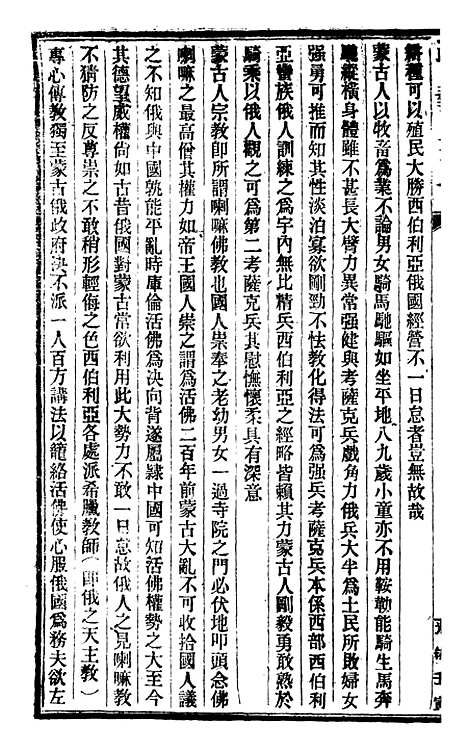 耕種可以殖民大勝西伯利亞俄國經營不一日怠者豈無故哉
蒙古人以牧畜爲業不論男女騎馬馳驅如坐平地八九歲小童亦不用鞍勒能騎生馬奔
馳縱橫身體雖不甚長大臂力異常强健與考薩克兵戲角力俄兵大半爲土民所敗婦女
强勇可推而知其性淡泊寡欲剛勁不怯教化得法可爲强兵考薩克兵本係西部西伯利
亞蠻族俄人訓練之爲宇內無比精兵西伯利亞之經略皆賴其力蒙古人剛毅勇敢熟於
騎乘以俄人觀之可爲第二考薩克兵其慰憮懷柔具有深意
蒙古人宗教卽所謂喇嘛佛教也國人崇奉之老幼男女一過寺院之門必伏地叩頭念佛
喇嘛之最高僧其權力如帝王國人崇之謂爲活佛二百年前蒙古大亂不可收拾國人議
之不知俄與中國孰能平亂時庫倫活佛爲決向背遂屬隷中國可知活佛權勢之大至今
其德望威權尙如古昔俄國對蒙古當欲利用此大勢力不敢一日怠故俄人之見喇嘛教
不猜防之反尊崇之不敢稍形輕侮之色西伯利亞各處派希臘教師(卽俄之天主教)
專心傳教獨至蒙古俄政府決不派一人百方講法以籠絡活佛使心服俄國爲務夫欲左